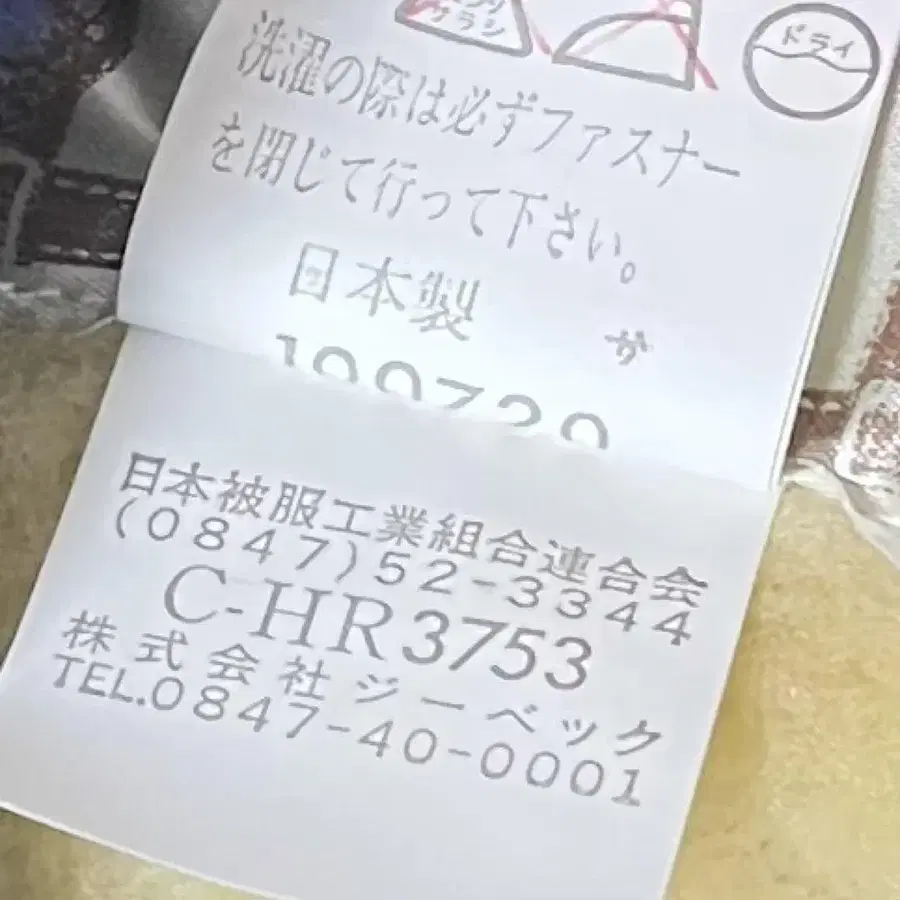 サラシ
ドライ
洗濯の際は必ずファスナー
を閉じて行って下さい。
日本製
か
日本被服工業組合連合会
(0847)52-3344
C-HR3753
株式会社ジーベック
TEL.0847-40-0001